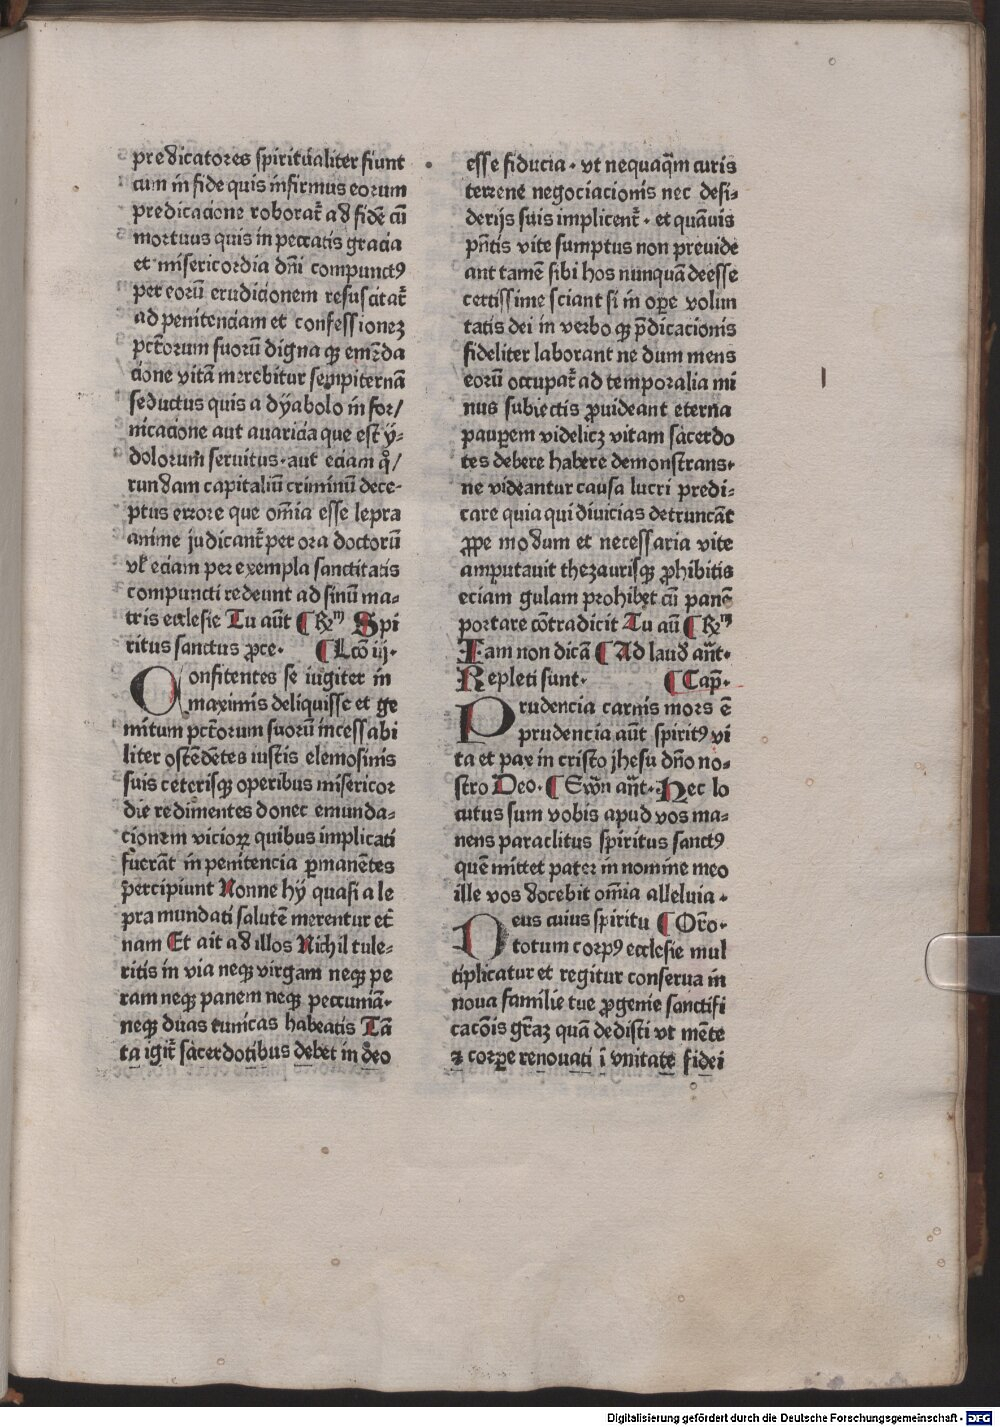 predicatores spiritualiter fiunt
cum in fide quis infirmus eorum
predicacione roborat᷑ ad fidē cū
mortuus quis in peccatis gracia
et misericordia dn̄i compunctꝰ
per eorū erudicionem resuscitat᷑
ad penitenciam et confessionez
pctōrum suorū digna qꝫ emēda
cione vitā merebitur sempiternā
seductus quis a dÿabolo in for/
nicacione aut auaricia que est ÿ-
dolorum seruitus· aut eciam q̊/
rundam capitaliū criminū dece-
ptus errore que om̄ia esse lepra
anime judicant᷑ per ora doctorū
vl̕ eciam per exempla sanctitatis
compuncti redeunt ad sinū ma-
tris ecclesie Tu aūt ¶ Rm̄ Spi
ritus sanctus ꝓce· ¶ Lcō iij·
Confitentes se iugiter in
maximis deliquisse et ge
mitum pctōrum suorū incessabi
liter ostēdētes iustis elemosinis
suis ceterisqꝫ operibus misericor
die redimentes donec emunda-
cionem viciorꝝ quibus implicati
fuerāt in penitencia ꝑmanētes
percipiunt Nonne hÿ quasi a le
pra mundati salutē merentur et̄
nam Et ait ad illos Nichil tule-
ritis in via neqꝫ virgam neqꝫ pe
ram neqꝫ panem neqꝫ peccuniā·
neqꝫ duas tunicas habeatis Tā
ta igit᷑ sacerdotibus debet in deo
esse fiducia· vt nequaqm̄ curis
terrene negociacionis nec desi-
derijs suis implicent᷑· et quāuis
pn̄tis vite sumptus non preuide
ant tamē sibi hos nunquā deesse
certissime sciant si in oꝑe volun
tatis dei in verbo qꝫ p̄dicacionis
fideliter laborant ne dum mens
eorū occupat᷑ ad temporalia mi
nus subiectis ꝓuideant eterna
pauꝑem videlicꝫ vitam sacerdo
tes debere habere demonstrans·
ne videantur causa lucri predi-
care quia qui diuicias detruncāt
ꝓpe modum et necessaria vite
amputauit thezaurisqꝫ ꝓhibitis
eciam gulam prohibet cū panē
portare cōtradicit Tu aū ¶ Rm̄
Iam non dicā ¶ Ad laud an̄t·
Repleti sunt· ¶ Cap̄·
Prudencia carnis mors ē
prudencia aūt spiritꝰ vi
ta et pax in cristo jhesu dn̄o no-
stro Deo· ¶ Ewn̄ an̄t· Hec lo
cutus sum vobis apud vos ma-
nens paraclitus spiritus sanctꝰ
quē mittet pater in nomine meo
ille vos docebit om̄ia alleluia·
Deus cuius spiritu ¶ Orō·
totum corpꝰ ecclesie mul
tiplicatur et regitur conserua in
noua familie tue ꝓgenie sanctifi
cacōis grāꝫ quā dedisti vt mēte
⁊ corꝑe renouati ī vnitate fidei
Digitalisierung gefördert durch die Deutsche Forschungsgemeinschaft - DFG